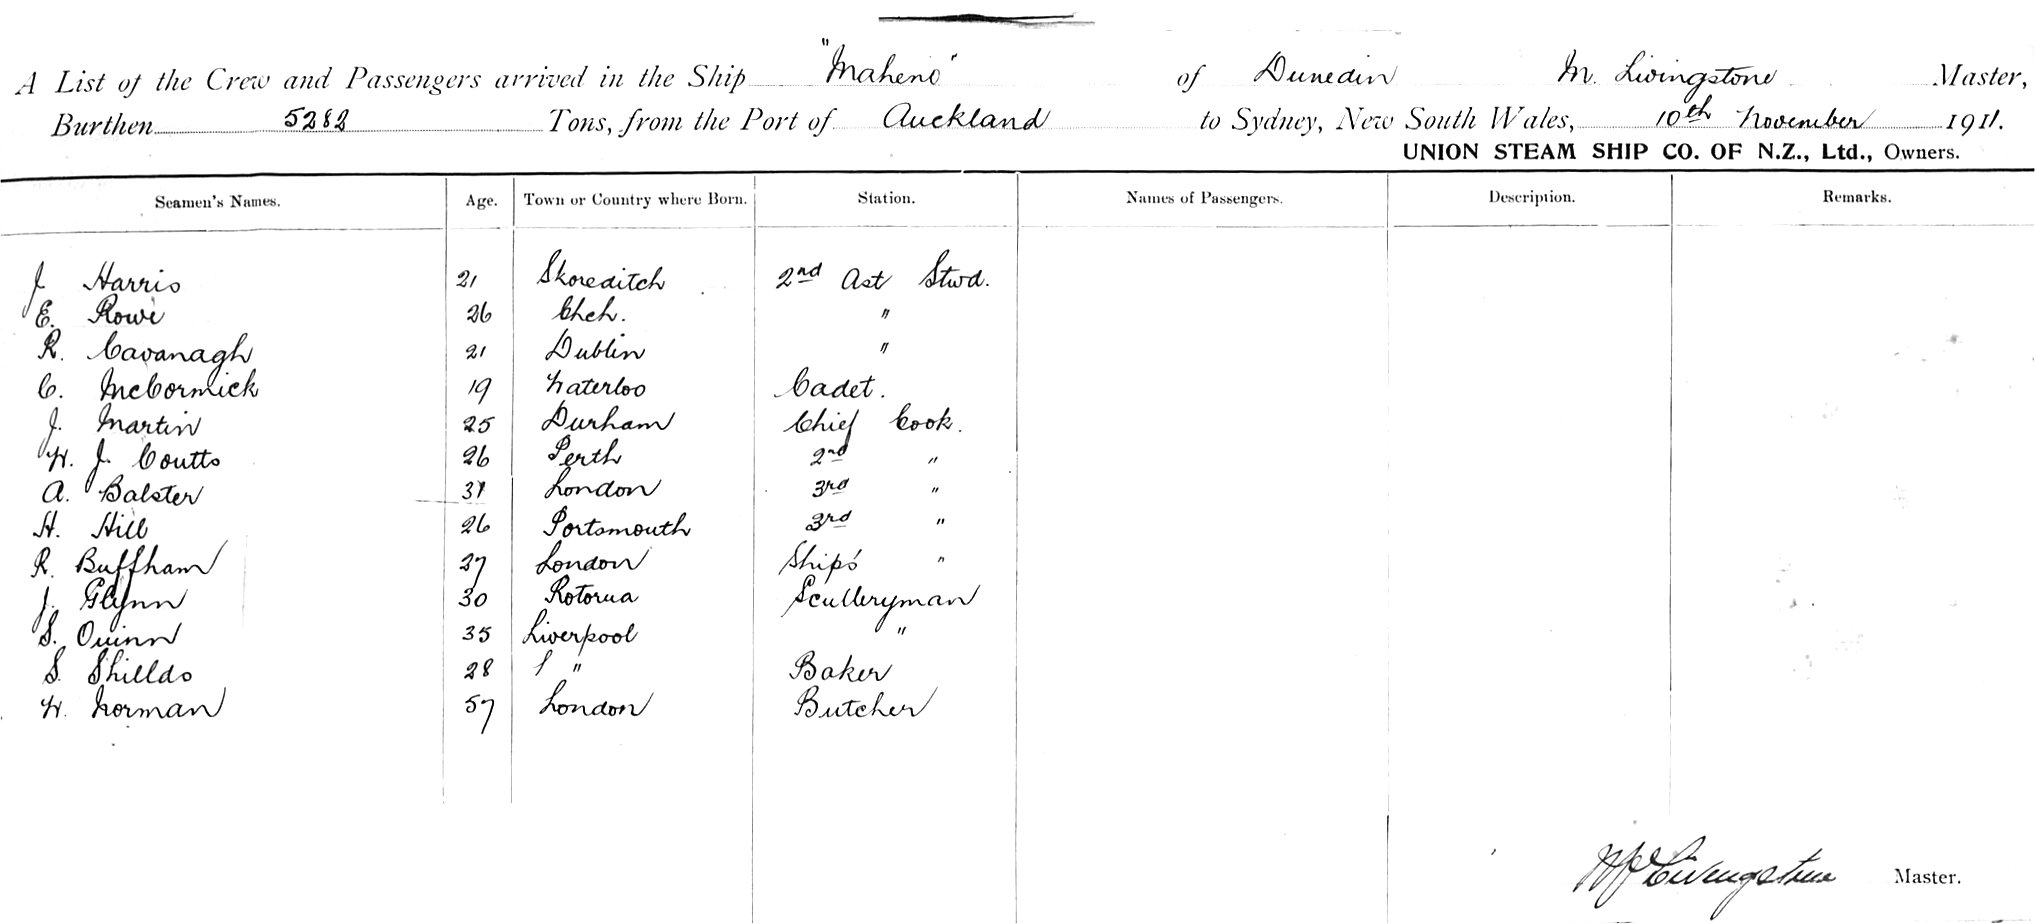 A List of the Crew and Passengers arrived in the Ship "Maheno" of Dunedin M. Livingstone Master,
Burthen 5282 Tons, from the Port of Auckland to Sydney, New South Wales, 10th November 1911.
UNION STEAM SHIP CO. OF N.Z., Ltd., Owners.
Seamen's Names. Age. Town or Country where Born. Station. Names of Passengers. Description. Remarks.
J Harris 21 Shoreditch 2nd Ast Stwd.
E. Rowe 26 Chch. "
R. Cavanagh 21 Dublin "
C. McCormick 19 Waterloo Cadet.
J. Martin 25 Durham Chief Cook.
W. J. Coutts 26 Perth 2nd "
A. Balster 31 London 3rd "
H. Hill 26 Portsmouth 3rd "
R. Buffham 27 London Ship's "
J. Glynn 30 Rotorua Sculleryman
S. Quinn 35 Liverpool "
S. Shillds 28 " Baker
W. Norman 57 London Butcher
M Livingstone Master.